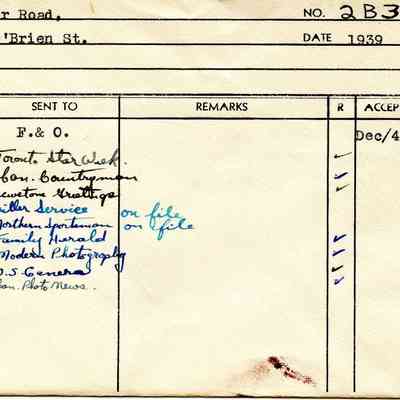 r Road,
NO. 2B3
'Brien St.
DATE 1939
SENT TO REMARKS R ACCEP
F.& O. Dec/4
Toronto Star Week.
Can. Countryman
Greetings
Miller Service on file
Northern Sportsman on file
Family Herald
Modern Photography
U.S Camera
Can. Photo News.